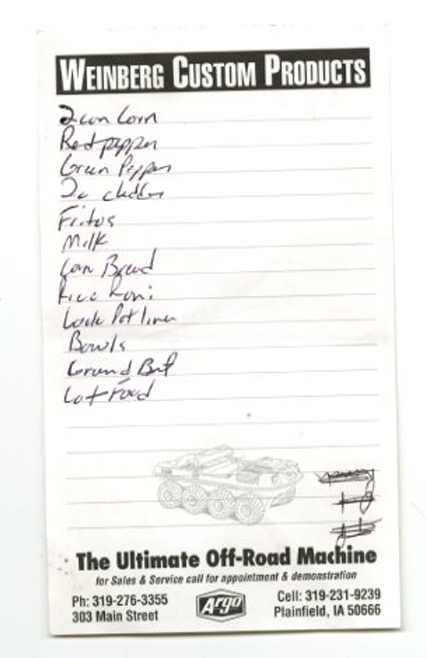 WEINBERG CUSTOM PRODUCTS
2 can Corn
Red pepper
Green Pepper
2c cheddar
Fritos
Milk
Corn Bread
Rice Roni
Pot liner
Bowls
Ground Beef
Cat Food
The Ultimate Off-Road Machine
for Sales & Service call for appointment & demonstration
Ph: 319-276-3355
303 Main Street
Argo
Cell: 319-231-9239
Plainfield, IA 50666